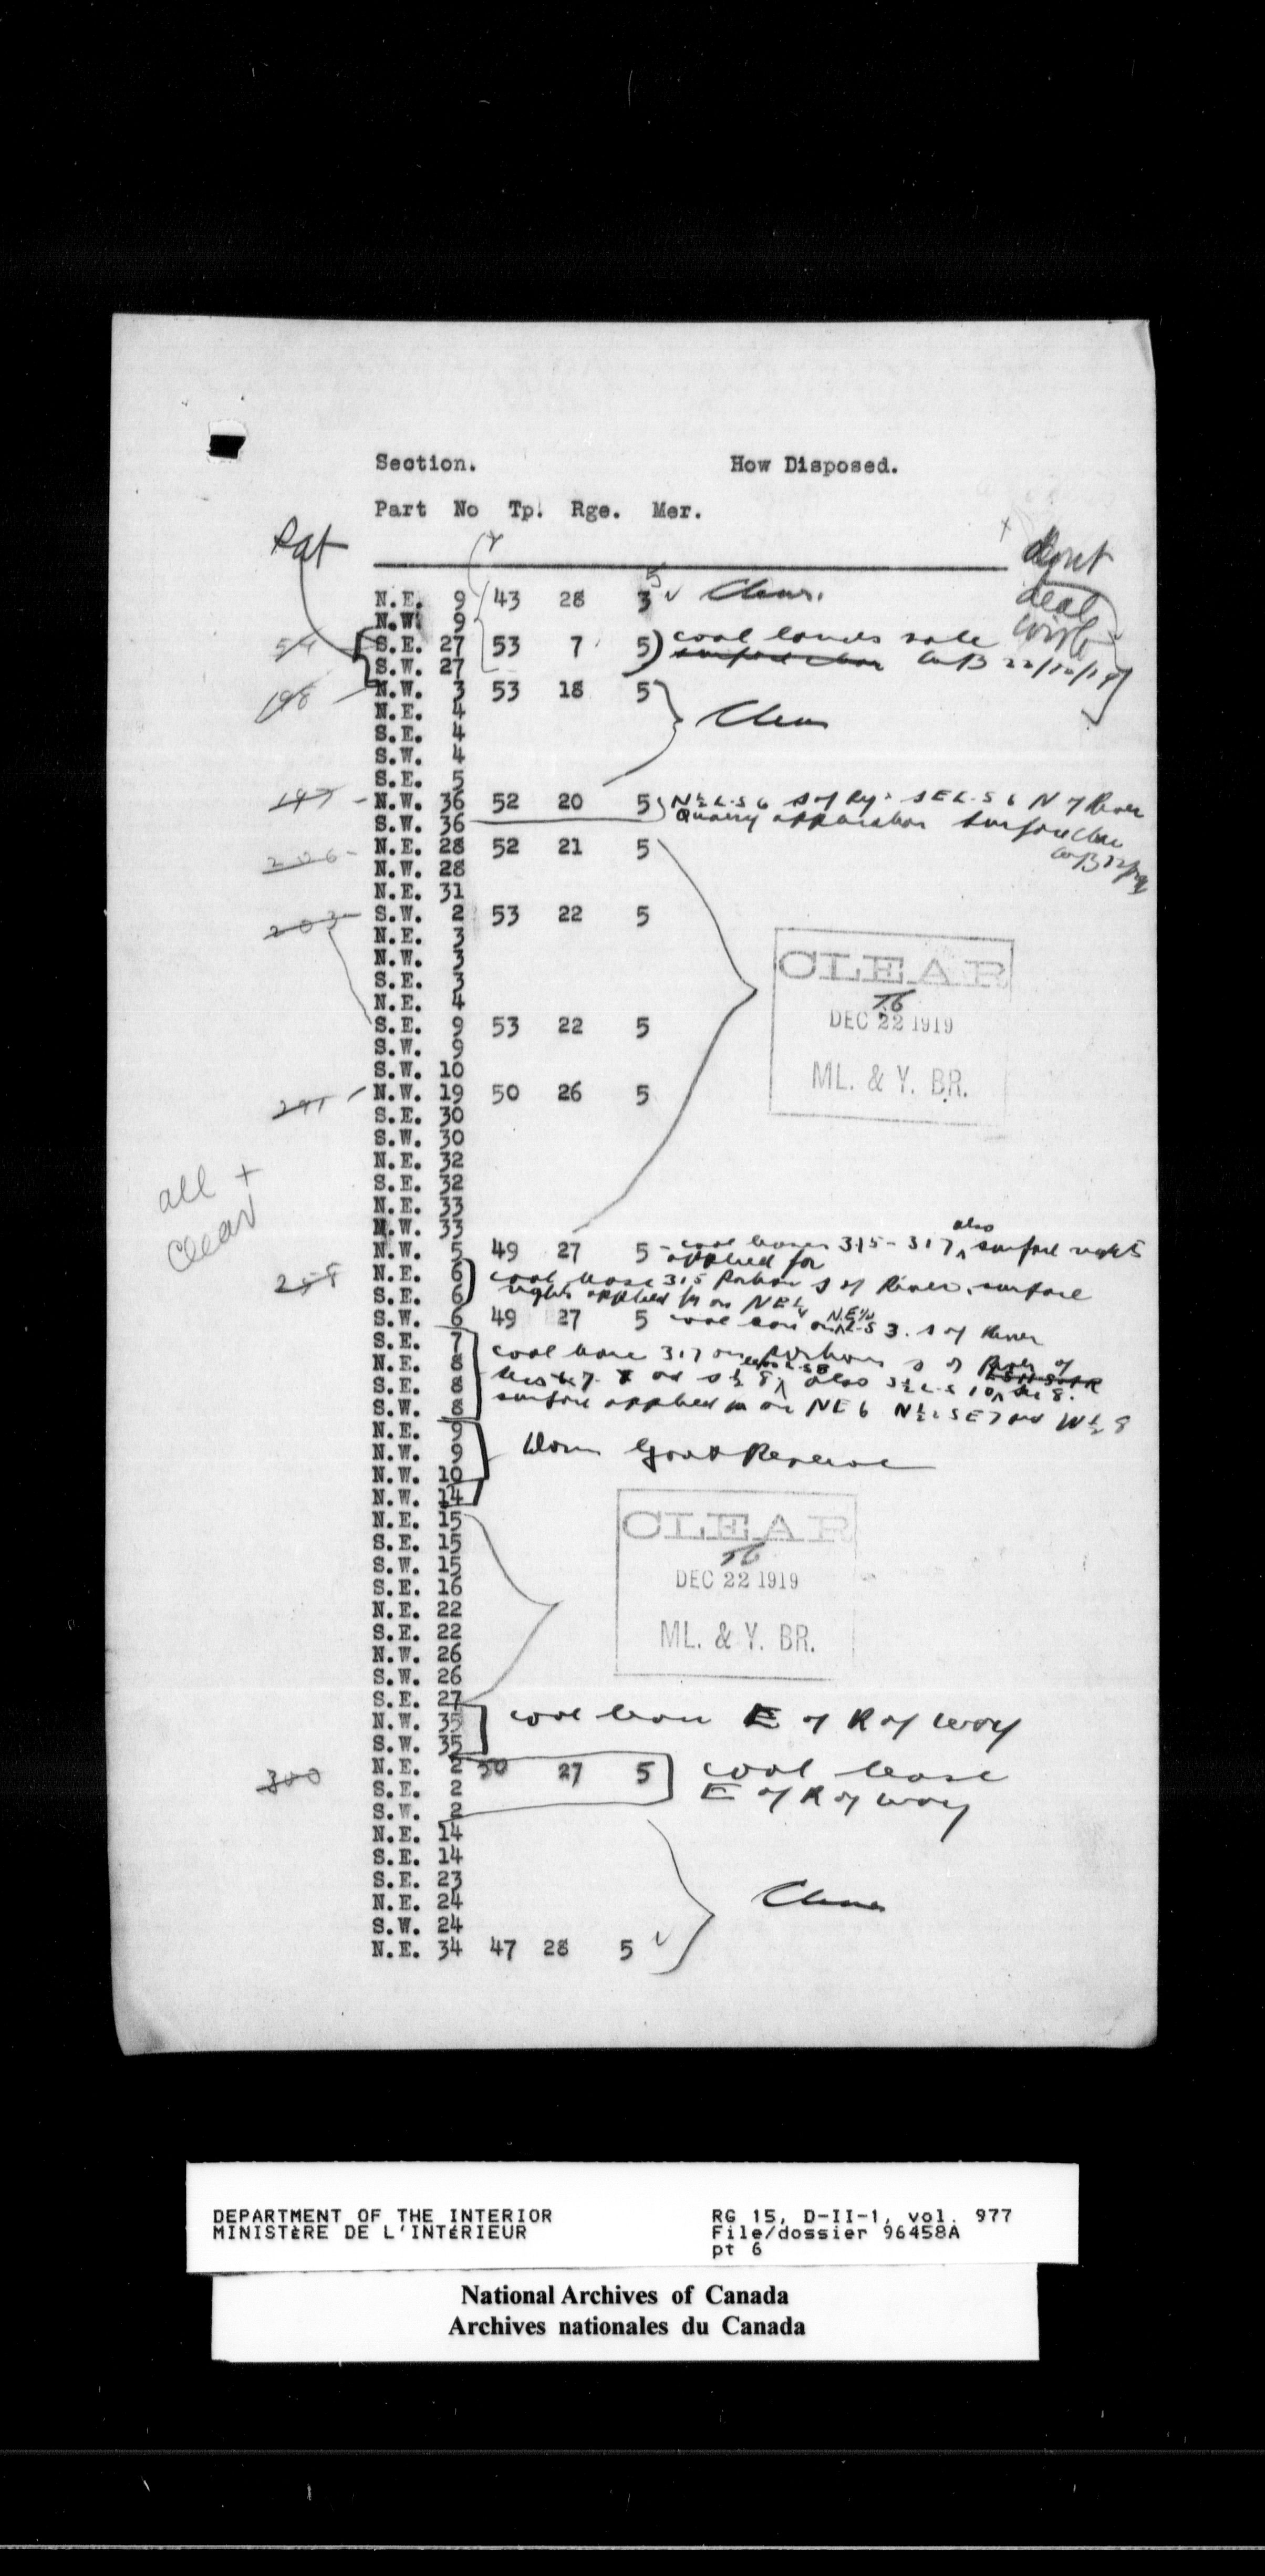 Section. How Disposed.
Part No Tp. Rge. Mer.
Pat
dont
deal
with
N.E. 9 43 28 3 5 Clear.
N.W. 9
S.E. 27 53 7 5 coal lands sale
S.W. 27 surface clear 22/12/19
198 N.W. 3 53 18 5
N.E. 4 Clear
S.E. 4
S.W. 4
S.E. 5
197 - N.W. 36 52 20 5 N½ L.S 6 S of Ry. SE L.S 6 N of River
S.W. 36 Quarry application surface clear
206 - N.E. 28 52 21 5
N.W. 28
N.E. 31
203 - S.W. 2 53 22 5
N.E. 3
N.W. 3
S.E. 3
N.E. 4
S.E. 9 53 22 5
S.W. 9
S.W. 10
CLEAR
DEC 22 1919
ML. & Y. BR.
291 - N.W. 19 50 26 5
S.E. 30
S.W. 30
N.E. 32
S.E. 32
N.E. 33
N.W. 33
all +
clear
N.W. 5 49 27 5 - coal leases 315 - 317 also surface rights
applied for
258 N.E. 6 coal lease 315 Portion S of River. surface
S.E. 6 rights applied for on NE¼
S.W. 6 49 27 5 coal lease on N.E¼ L-S 3. S of River
S.E. 7 coal lease 317 on portions S of River of
N.E. 8
S.E. 8 also S½ L-S 10 Sec 8.
S.W. 8 surface applied for on NE 6 N½ SE 7 and W½ 8
N.E. 9
N.W. 9 Dom Govt Reserve
N.W. 10
N.W. 14
N.E. 15
S.E. 15
S.W. 15
S.E. 16
N.E. 22
S.E. 22
N.W. 26
S.W. 26
S.E. 27
CLEAR
DEC 22 1919
ML. & Y. BR.
N.W. 35 coal lease E of R of way
S.W. 35
300 N.E. 2 50 27 5 coal lease
S.E. 2 E of R of way
S.W. 2
N.E. 14
S.E. 14
S.E. 23
N.E. 24 Clear
S.W. 24
N.E. 34 47 28 5
DEPARTMENT OF THE INTERIOR RG 15, D-II-1, vol. 977
MINISTÈRE DE L'INTÉRIEUR File/dossier 96458A
pt 6
National Archives of Canada
Archives nationales du Canada